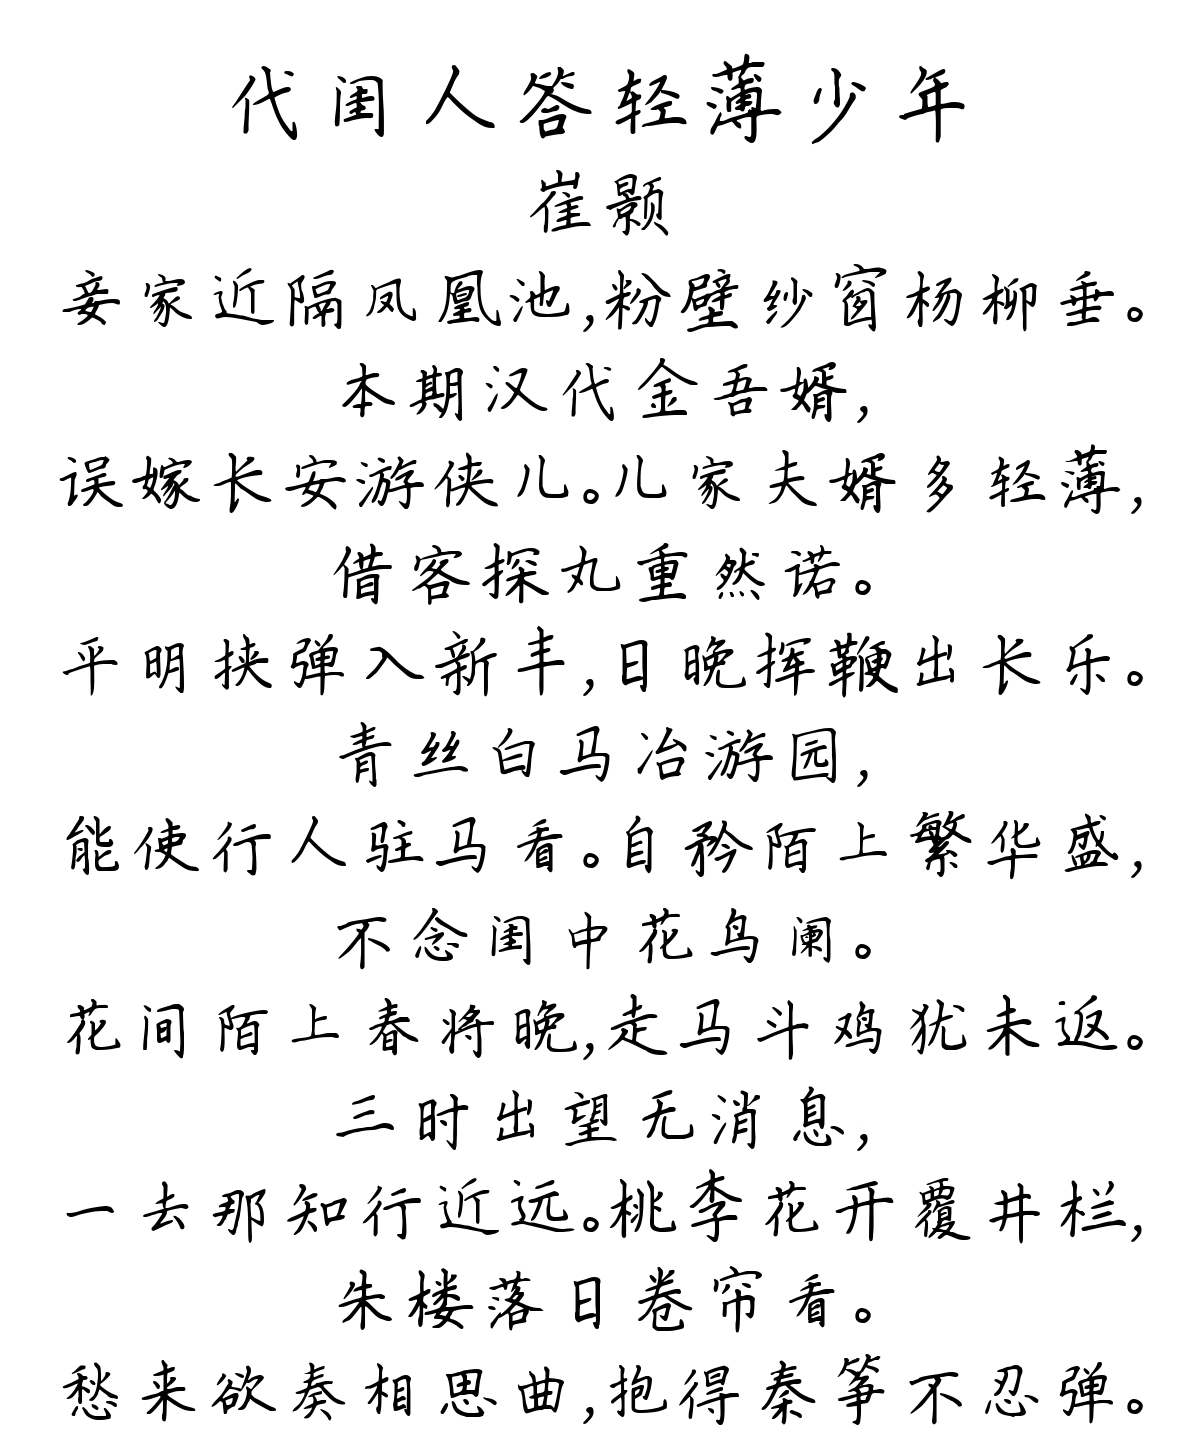 代闺人答轻薄少年
崔颢
妾家近隔凤凰池,粉壁纱窗杨柳垂。
本期汉代金吾婿,
误嫁长安游侠儿。儿家夫婿多轻薄,
借客探丸重然诺。
平明挟弹入新丰,日晚挥鞭出长乐。
青丝白马冶游园,
能使行人驻马看。自矜陌上繁华盛,
不念闺中花鸟阑。
花间陌上春将晚,走马斗鸡犹未返。
三时出望无消息,
一去那知行近远。桃李花开覆井栏,
朱楼落日卷帘看。
愁来欲奏相思曲,抱得秦筝不忍弹。